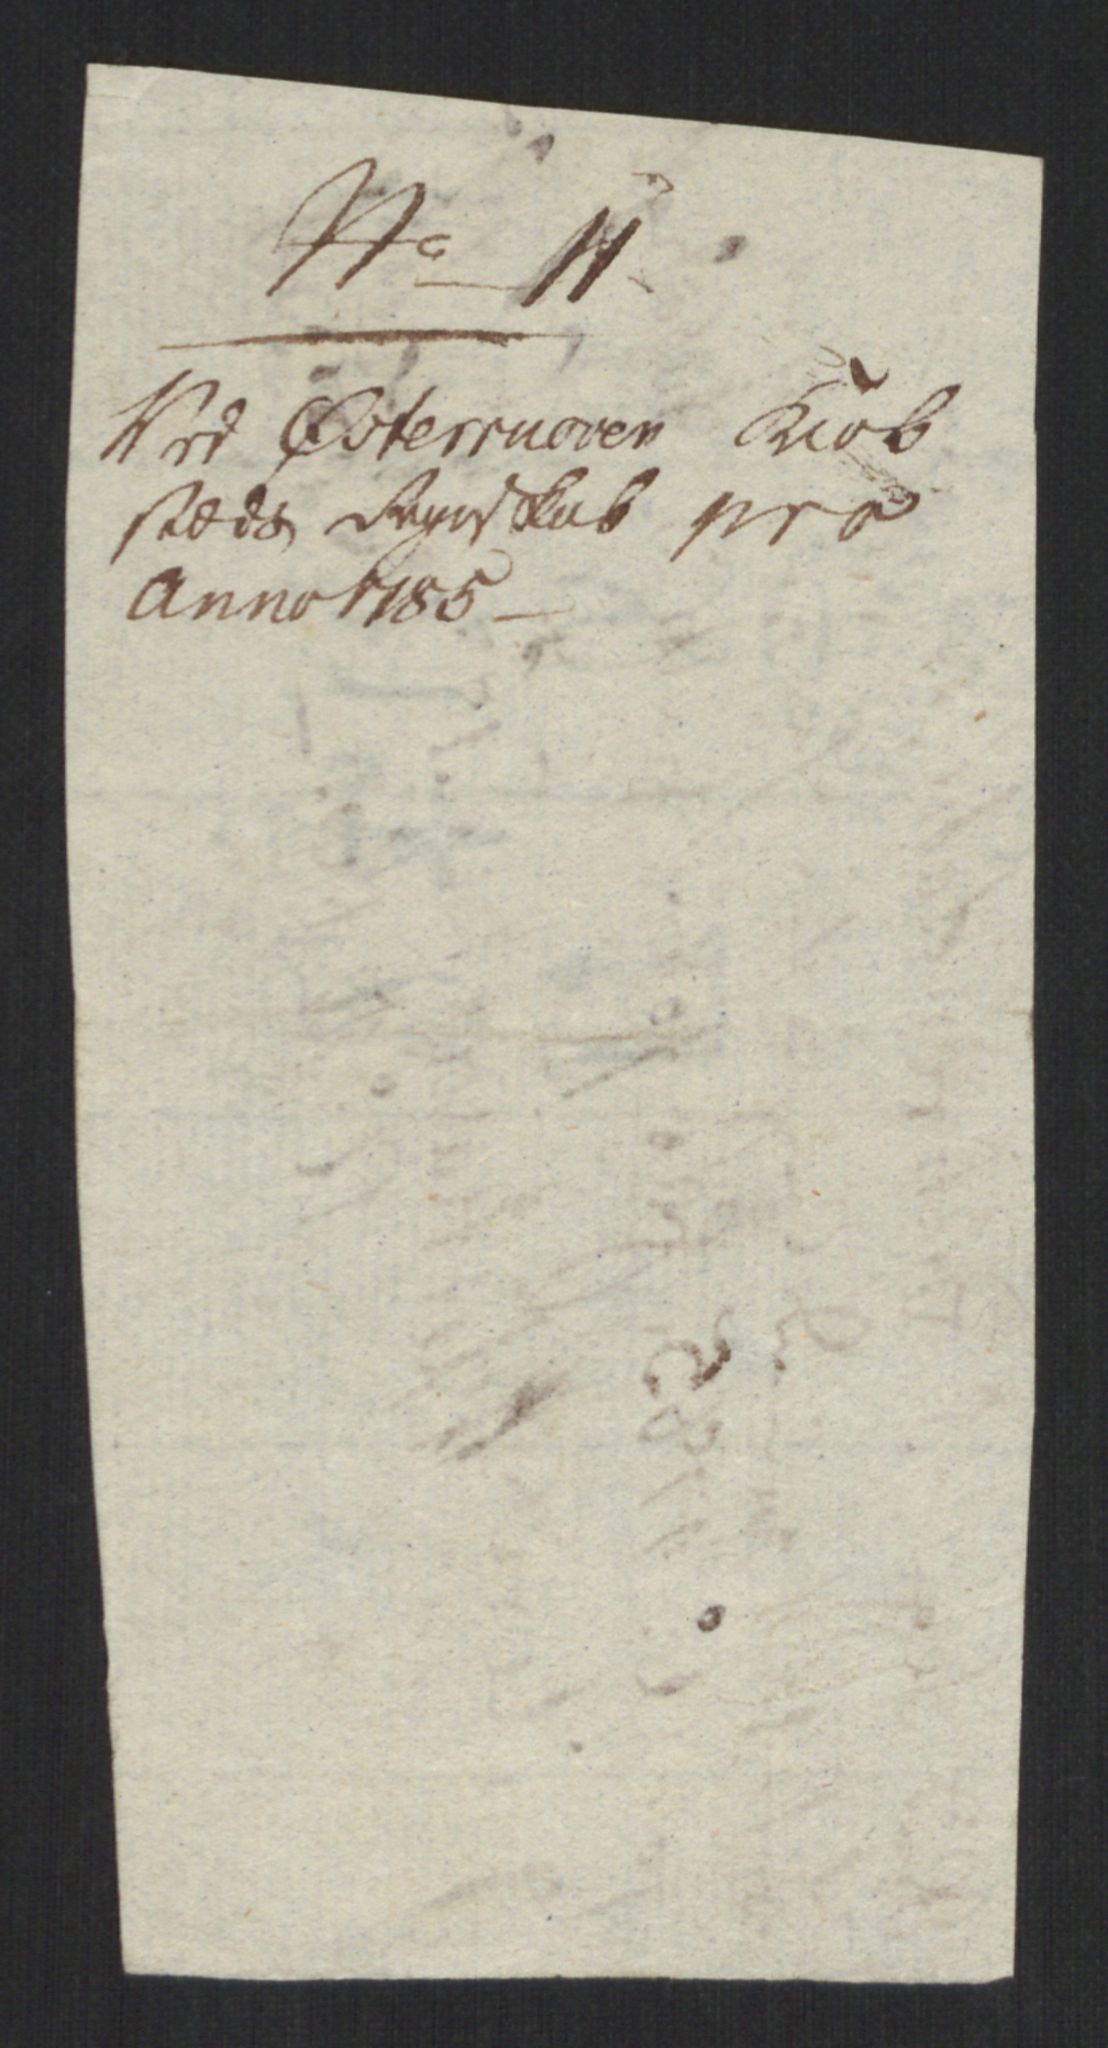 No 11.
Ved Østerriisöer Kiöb
stæds Regnskab pro
Anno 1785